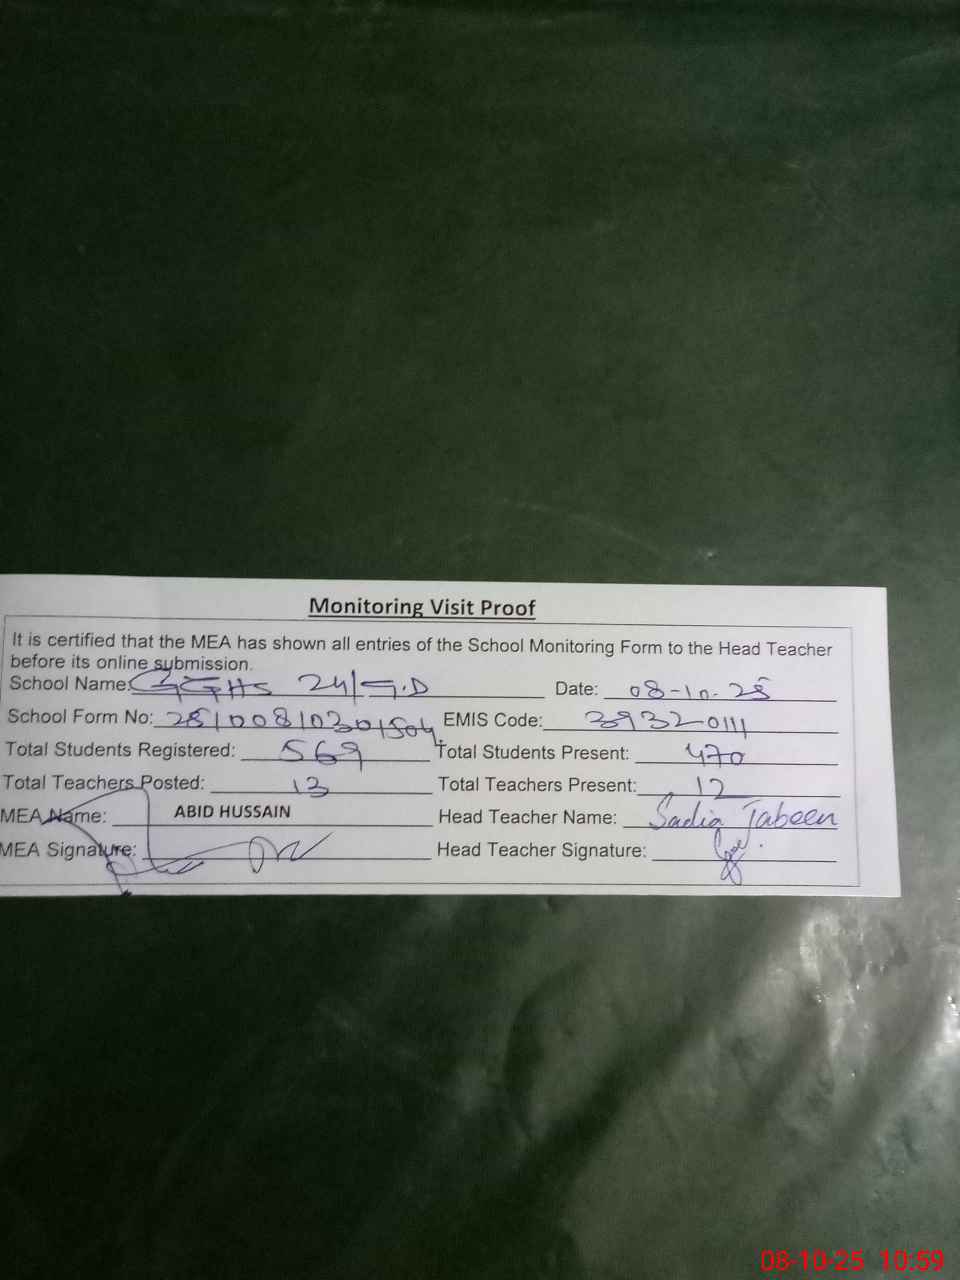 Monitoring Visit Proof
It is certified that the MEA has shown all entries of the School Monitoring Form to the Head Teacher
before its online submission.
School Name: GGHS 24/G.D Date: 08-10-25
School Form No: EMIS Code: 39320111
Total Students Registered: 569 Total Students Present: 470
Total Teachers Posted: 13 Total Teachers Present: 12
MEA Name: ABID HUSSAIN Head Teacher Name: Sadia Jabeen
MEA Signature: Head Teacher Signature:
08-10-25 10:59